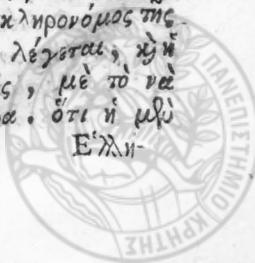 κληρονόμος τῆς
λέγεται, ϗ ἡ
ς, μὲ τὸ νὰ
α. ὅτι ἡ μὲν
Ἑλλη-
ΠΑΝΕΠΙΣΤΗΜΙΟ ΚΡΗΤΗΣ